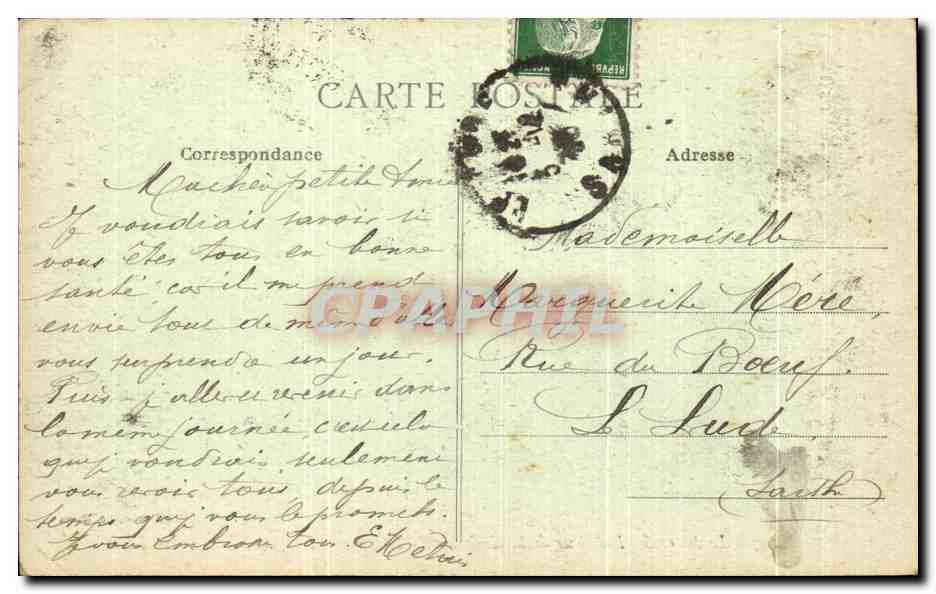 CARTE POSTALE
Correspondance
Ma chère petite Amie
Je voudrais savoir si
vous êtes tous en bonne
santé car il me prend
envie tout de même d'aller
vous surprendre un jour.
Puis-j aller et revenir dans
la même journée, c'est cela
que j voudrais, seulement
vous revoir tous, depuis le
temps que j vous le promets.
Je vous embrasse tous
Adresse
Mademoiselle
Marguerite Mére
Rue du Bœuf.
Le Lude
Sarthe
CPAPHIL